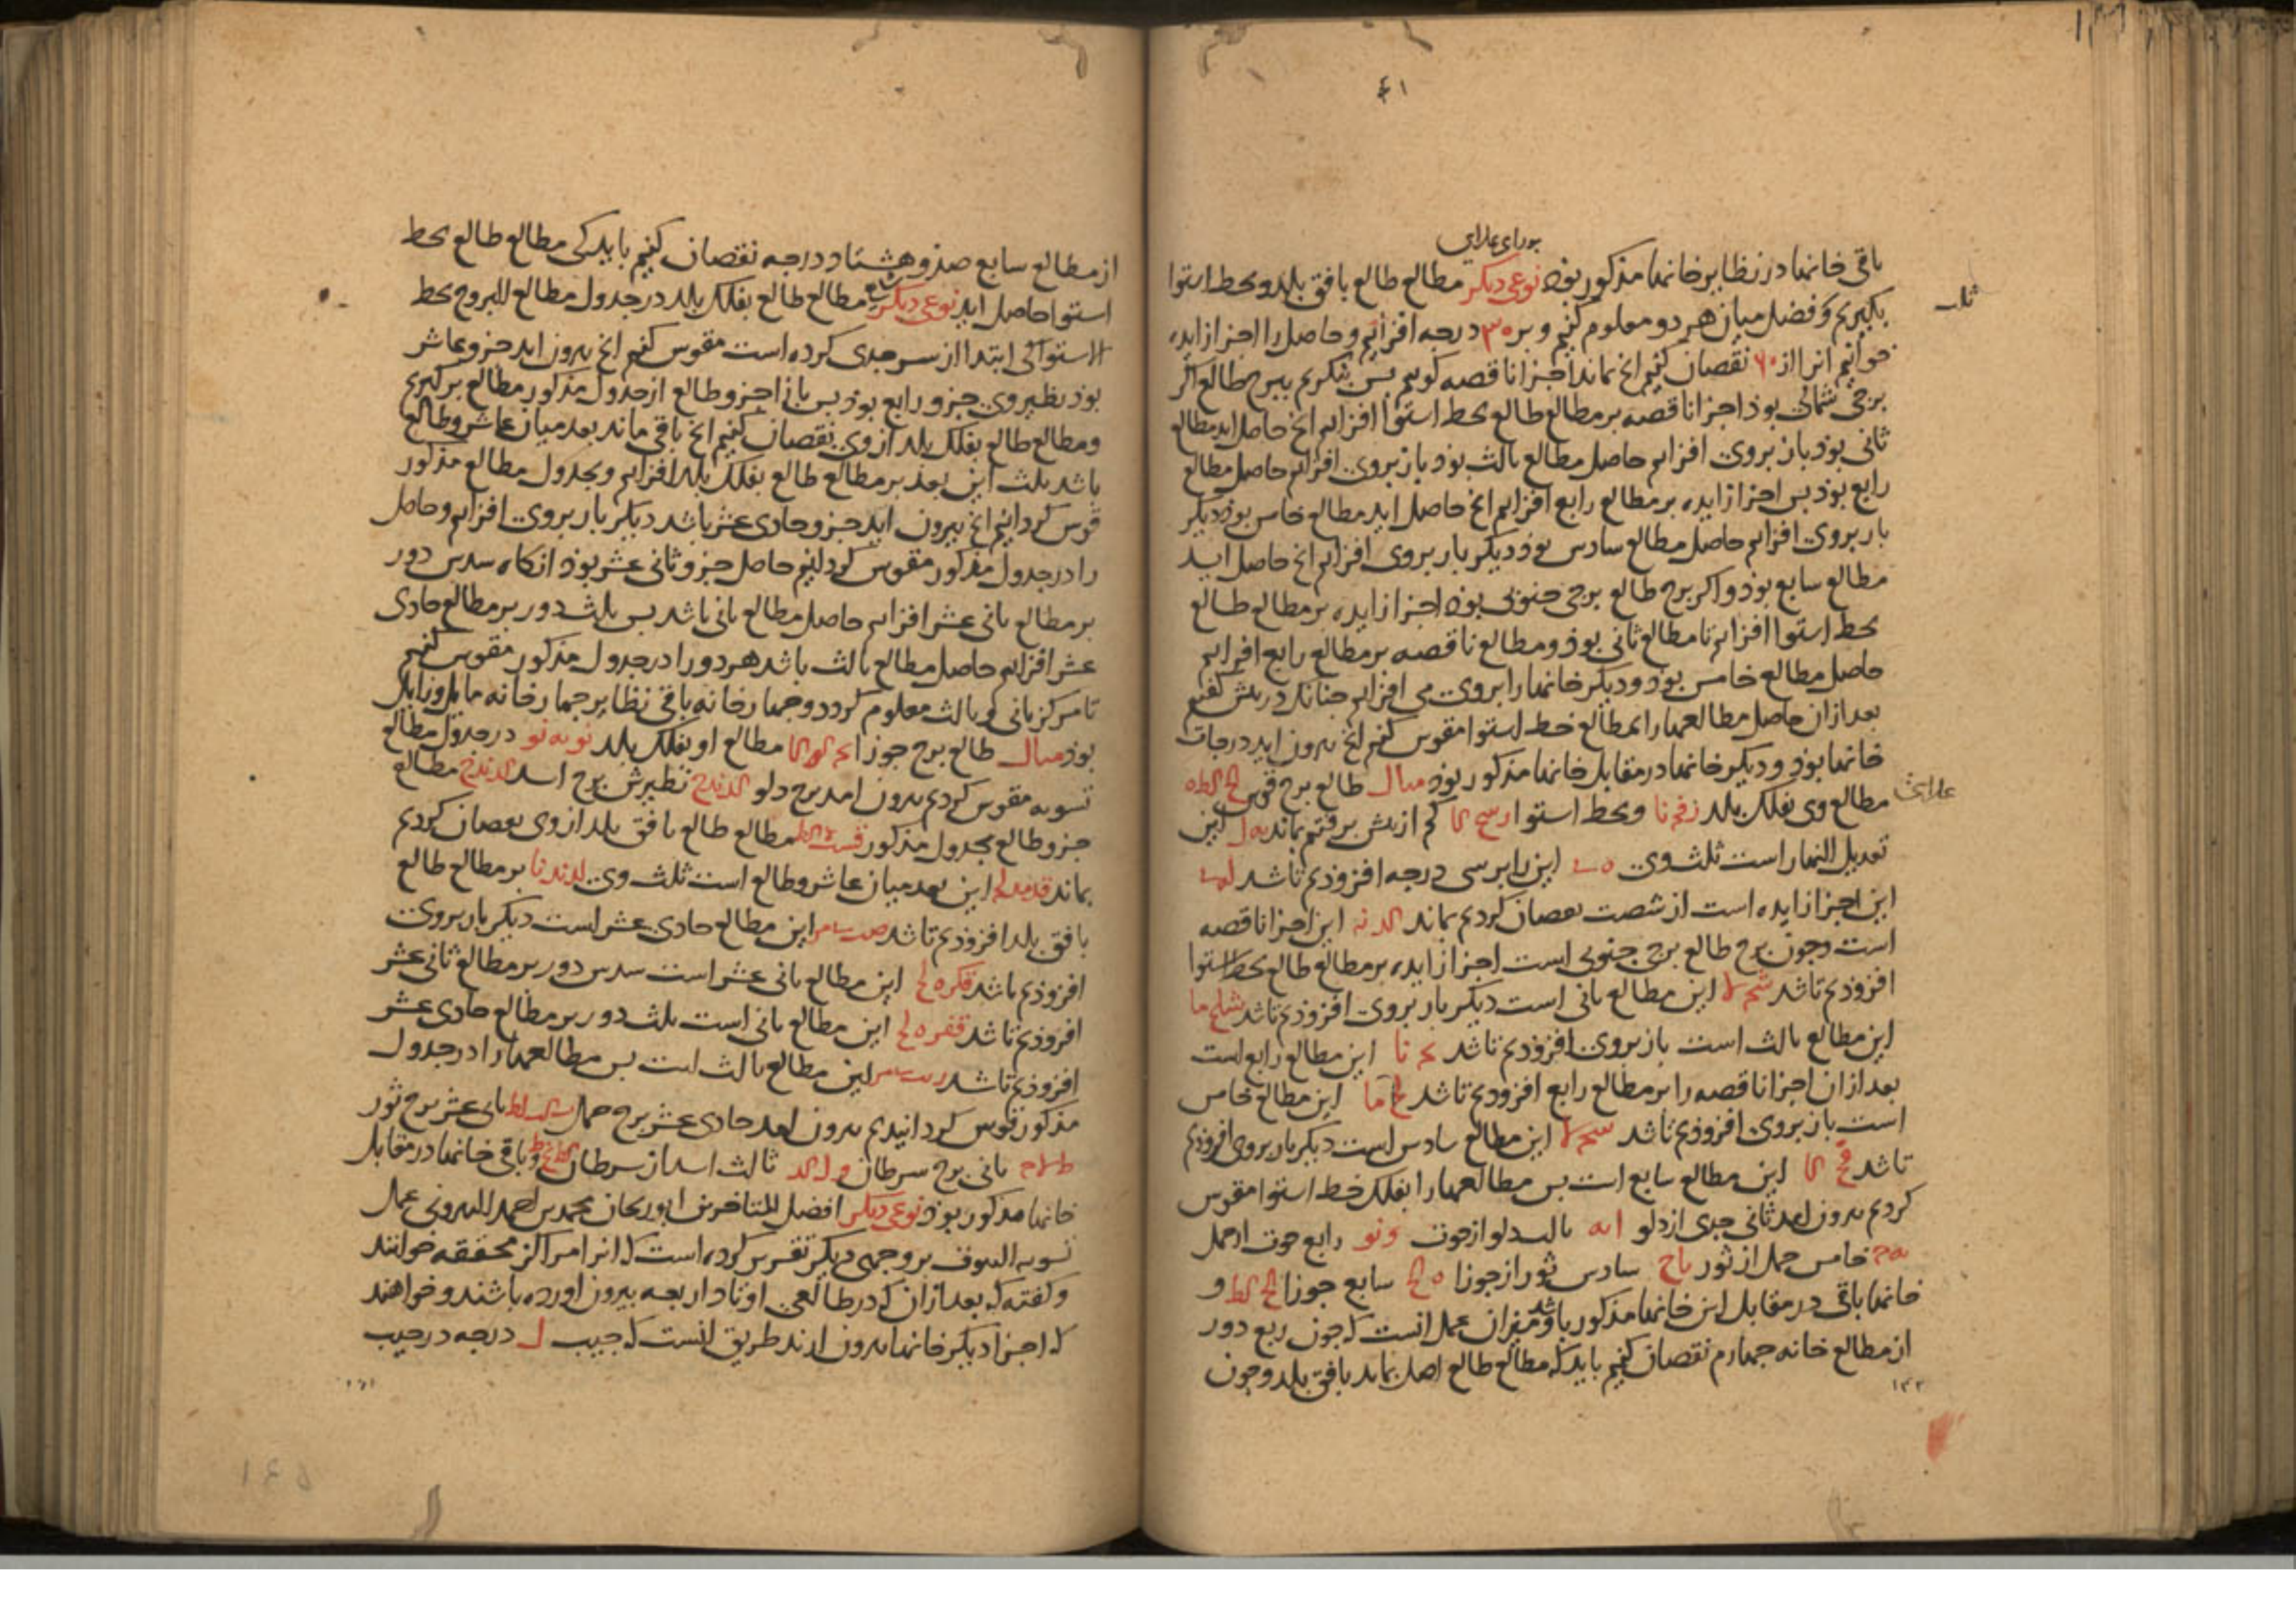 ۴۱
باقی خانها در نظایر خانها مذکور بوذ نوعی دیکر مطالع طالع بافق بلد و بخط استوا
بکیریم و فضل میان هر دو معلوم کنیم و بر ۳۰ درجه افزاییم و حاصل را اجزا زایده
خوانیم انرا از ۶۰ نقصان کنیم انج بماند اجزا ناقصه کوییم بس بنکریم ببرج طالع اکر
برجی شمالی بوذ اجزا ناقصه بر مطالع طالع بخط استوا افزاییم انج حاصل اید مطالع
ثانی بوذ باز بروی افزاییم حاصل مطالع ثالث بوذ باز بروی افزاییم حاصل مطالع
رابع بوذ بس اجزا زایده بر مطالع رابع افزاییم انج حاصل اید مطالع خامس بوذ دیکر
بار بروی افزاییم حاصل مطالع سادس بوذ دیکر بار بروی افزاییم انج حاصل اید
مطالع سابع بوذ و اکر برج طالع برجی جنوبی بوذ اجزا زایده بر مطالع طالع
بخط استوا افزاییم تا مطالع ثانی بوذ و مطالع ناقصه بر مطالع رابع افزاییم
حاصل مطالع خامس بوذ و دیکر خانها را بروی می افزاییم جنانک در بیش کفتیم
بعد ازان حاصل مطالعها را بمطالع خط استوا مقوس کنیم انج بیرون اید درجات
خانها بوذ و دیکر خانها در مقابل خانها مذکور بوذ مثال طالع برج قوس
مطالع وی بفلک بلد و بخط استوا کم از بیش برفتیم بماند این
تعدیل النهار است ثلث وی این را بر سی درجه افزوذیم تا شد
این اجزا زایده است از شصت نقصان کردیم بماند این اجزا ناقصه
است و جون برج طالع برجی جنوبی است اجزا زایده بر مطالع طالع بخط استوا
افزوذیم تا شد این مطالع ثانی است دیکر بار بروی افزوذیم تا شد
این مطالع ثالث است باز بروی افزوذیم تا شد این مطالع رابع است
بعد ازان اجزا ناقصه را بر مطالع رابع افزوذیم تا شد این مطالع خامس
است باز بروی افزوذیم تا شد این مطالع سادس است دیکر بار بروی افزوذیم
تا شد این مطالع سابع است بس مطالعها را بفلک خط استوا مقوس
کردیم بیرون امد ثانی جدی از دلو ثالث دلو از حوت رابع حوت از حمل
خامس حمل از ثور سادس ثور از جوزا سابع جوزا و
خانها باقی در مقابل این خانها مذکور باشد و میزان عمل انست که جون ربع دور
از مطالع خانه جهارم نقصان کنیم باید که مطالع طالع اصل بماند بافق بلد و جون
از مطالع سابع صذ و هشتاد درجه نقصان کنیم باید کی مطالع طالع بخط
استوا حاصل اید نوعی دیکر مطالع طالع بفلک بلد در جدول مطالع البروج بخط
الاستوا کی ابتدا از سر جدی کرده است مقوس کنیم انج بیرون اید جزو عاشر
بوذ نظیر وی جزو رابع بوذ بس بازا جزو طالع از جدول مذکور مطالع برکیریم
و مطالع طالع بفلک بلد از وی نقصان کنیم انج باقی ماند بعد میان عاشر و طالع
باشد ثلث این بعد بر مطالع طالع بفلک بلد افزاییم و بجدول مطالع مذکور
قوس کردانیم انج بیرون اید جزو حادی عشر باشد دیکر بار بروی افزاییم و حاصل
را در جدول مذکور مقوس کردانیم حاصل جزو ثانی عشر بوذ انکاه سدس دور
بر مطالع ثانی عشر افزاییم حاصل مطالع ثانی باشد بس ثلث دور بر مطالع حادی
عشر افزاییم حاصل مطالع ثالث باشد هر دو را در جدول مذکور مقوس کنیم
تا مرکز ثانی و ثالث معلوم کردد و جهار خانه باقی نظایر جهار خانه مایل و زایل
بوذ مثال طالع برج جوزا مطالع او بفلک بلد در جدول مطالع
تسویه مقوس کردیم بیرون امد برج دلو نظیرش برج اسد مطالع
جزو طالع بجدول مذکور مطالع طالع بافق بلد از وی نقصان کردیم
بماند این بعد میان عاشر و طالع است ثلث وی بر مطالع طالع
بافق بلد افزوذیم تا شد این مطالع حادی عشر است دیکر بار بروی
افزوذیم تا شد این مطالع ثانی عشر است سدس دور بر مطالع ثانی عشر
افزوذیم تا شد این مطالع ثانی است ثلث دور بر مطالع حادی عشر
افزوذیم تا شد این مطالع ثالث است بس مطالعها را در جدول
مذکور قوس کردانیدیم بیرون امد حادی عشر برج حمل ثانی عشر برج ثور
ثانی برج سرطان ثالث اسد از سرطان و باقی خانها در مقابل
خانها مذکور بوذ نوعی دیکر افضل المتاخرین ابوریحان محمد بن احمد البیرونی عمل
تسویه البیوت بر وجهی دیکر تقریر کرده است که انرا مراکز محققه خوانند
و کفته که بعد ازان که در طالعی اوتاد اربعه بیرون اورده باشند و خواهند
که اجزا دیکر خانها بیرون ارند طریق انست که جیب ل درجه در جیب